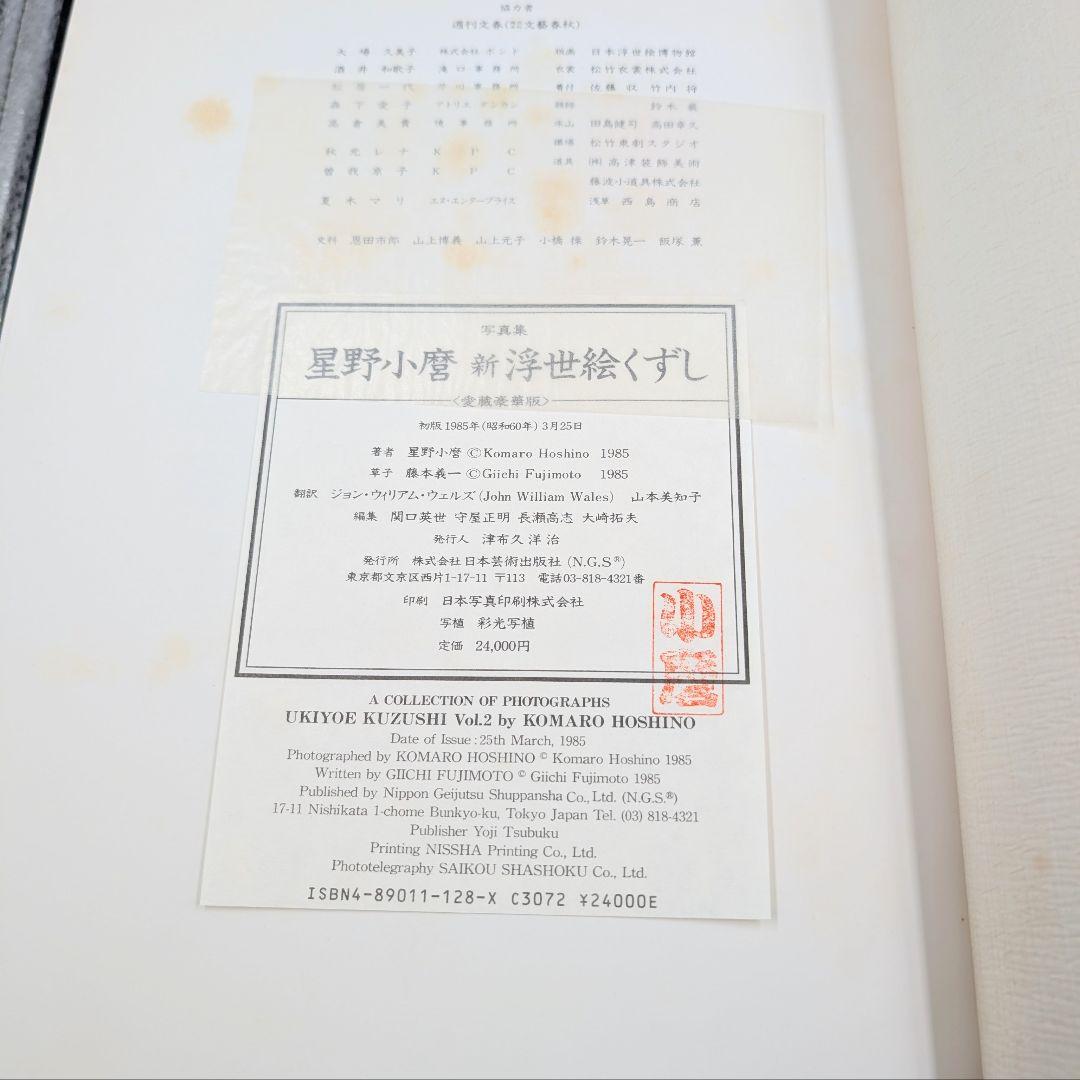 協力者
週刊文春(文藝春秋)
久美子 株式会社 ボンド 日本浮世絵博物館
酒井和歌子 滝口事務所 衣裳 松竹衣裳株式会社
一代 事務所 着付 佐藤収 竹内
森下愛子 アトリエ・ダンカン 鈴木
高倉美貴 事務所 田島健司 高田幸久
秋元レナ KPC 松竹東劇スタジオ
曽我京子 KPC 道具 ㈱高津装飾美術
藤波小道具株式会社
夏木マリ エヌ・エンタープライズ 浅草 西島商店
史料 恩田市郎 山上博義 山上元子 小橋 鈴木晃一 飯塚薫
写真集
星野小麿 新浮世絵くずし
〈愛蔵豪華版〉
初版1985年(昭和60年)3月25日
著者 星野小麿 ©Komaro Hoshino 1985
草子 藤本義一 ©Giichi Fujimoto 1985
翻訳 ジョン・ウィリアム・ウェルズ(John William Wales) 山本美知子
編集 関口英世 守屋正明 長瀬高志 大崎拓夫
発行人 津布久洋治
発行所 株式会社日本芸術出版社 (N.G.S®)
東京都文京区西片1-17-11 〒113 電話03-818-4321番
印刷 日本写真印刷株式会社
写植 彩光写植
定価 24,000円
小麿
A COLLECTION OF PHOTOGRAPHS
UKIYOE KUZUSHI Vol.2 by KOMARO HOSHINO
Date of Issue : 25th March, 1985
Photographed by KOMARO HOSHINO © Komaro Hoshino 1985
Written by GIICHI FUJIMOTO © Giichi Fujimoto 1985
Published by Nippon Geijutsu Shuppansha Co., Ltd. (N.G.S.®)
17-11 Nishikata 1-chome Bunkyo-ku, Tokyo Japan Tel. (03) 818-4321
Publisher Yoji Tsubuku
Printing NISSHA Printing Co., Ltd.
Phototelegraphy SAIKOU SHASHOKU Co., Ltd.
ISBN4-89011-128-X C3072 ¥24000E